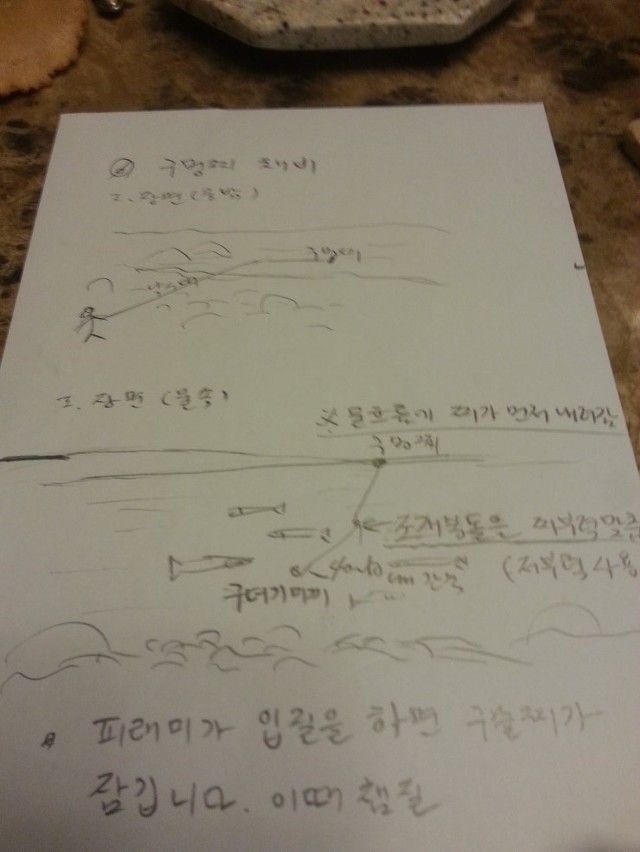 구멍찌 채비
그. 장면(물밖)
구멍찌
낚시대
그. 장면(물속)
※ 물흐름에 찌가 먼저 내려감
구멍찌
← 조개봉돌은 찌부력맞춤
(저부력 사용
간격
구더기미끼
피래미가 입질을 하면 구슬찌가
잠깁니다. 이때 챔질